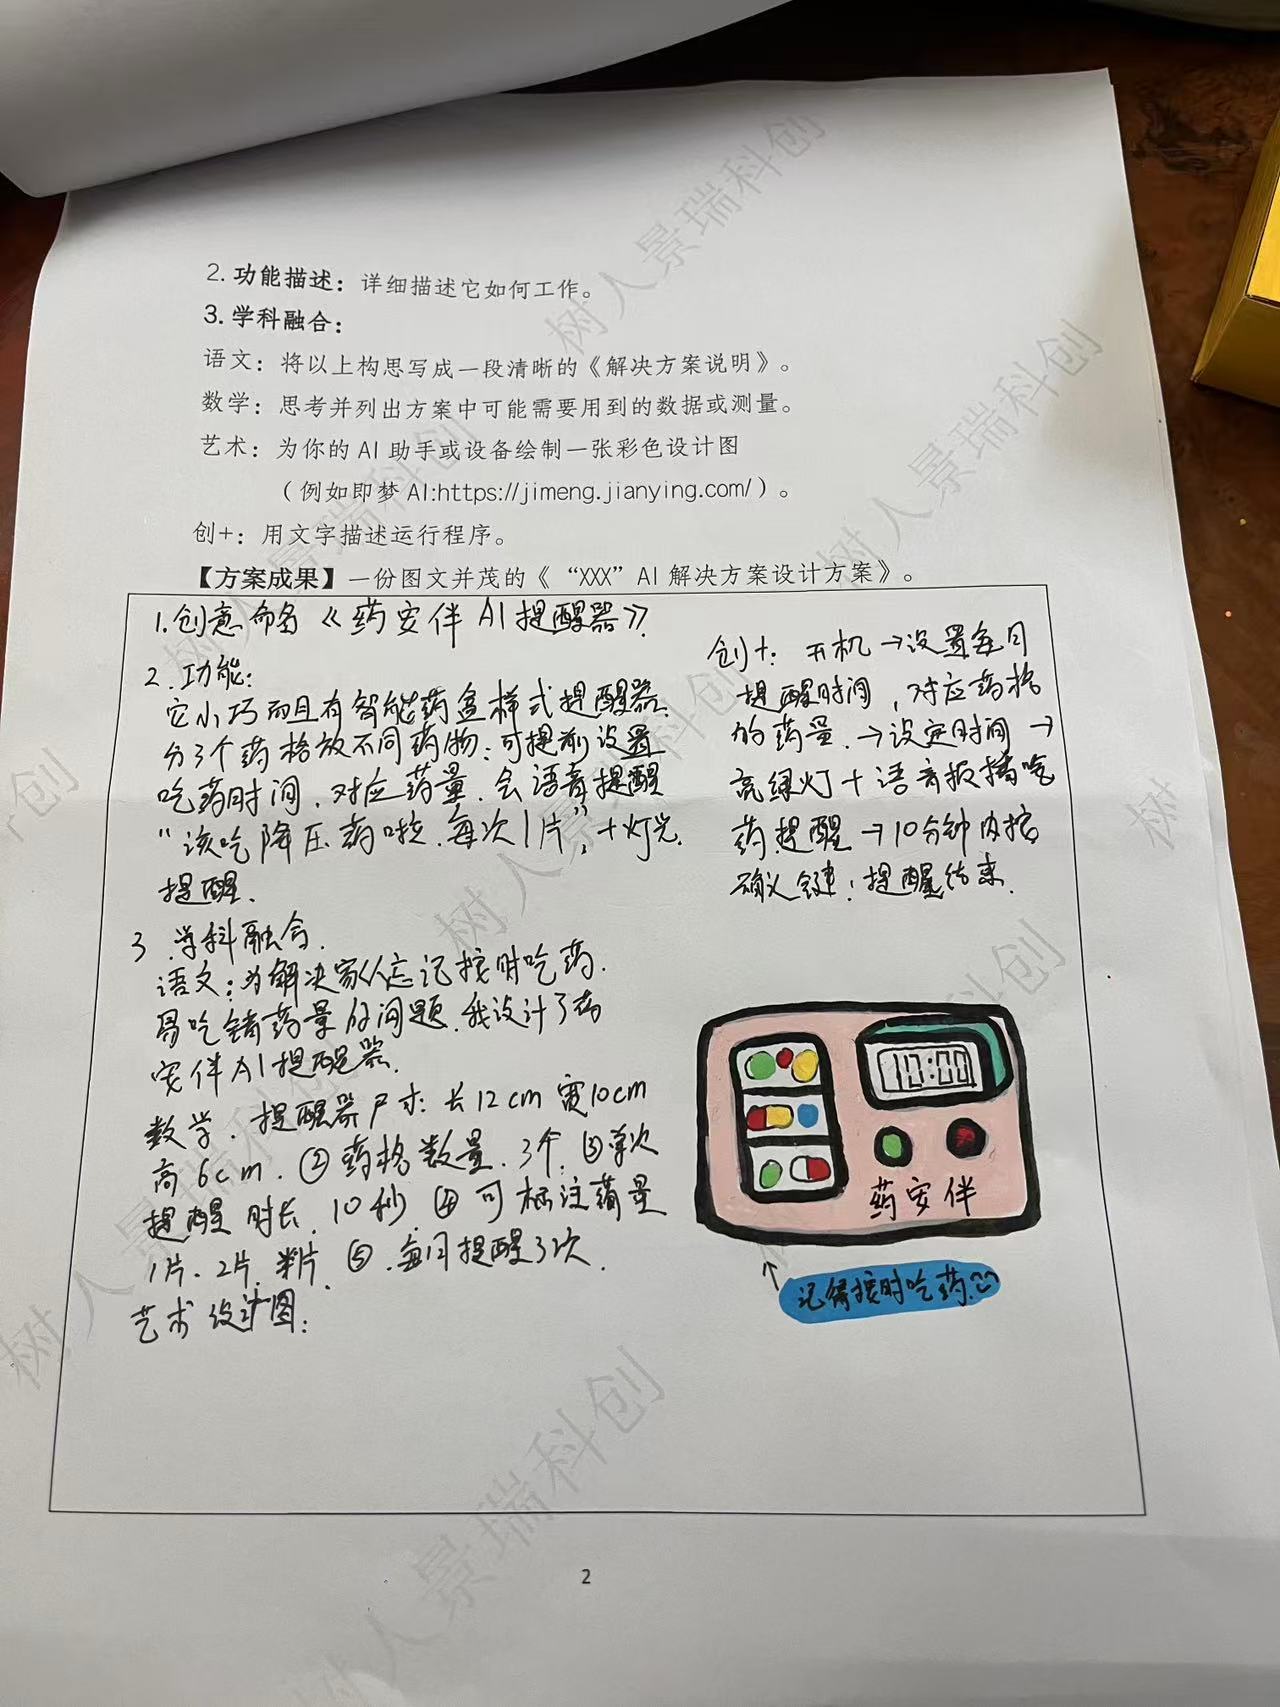 2. 功能描述：详细描述它如何工作。
3. 学科融合：
语文：将以上构思写成一段清晰的《解决方案说明》。
数学：思考并列出方案中可能需要用到的数据或测量。
艺术：为你的 AI 助手或设备绘制一张彩色设计图
（例如即梦 AI:https://jimeng.jianying.com/）。
创+：用文字描述运行程序。
【方案成果】一份图文并茂的《“XXX”AI 解决方案设计方案》。
1.创意命名《药安伴 AI提醒器》
2.功能：
它小巧而且有智能药盒样式提醒器.
分3个药格放不同药物：可提前设置
吃药时间、对应药量.会语音提醒
“该吃降压药啦.每次1片”，+灯光
提醒.
3.学科融合.
语文：为解决家人忘记按时吃药.
易吃错药量的问题.我设计了药
安伴AI提醒器.
数学.提醒器尺寸：长12cm 宽10cm
高6cm. ②药格数量.3个. ③单次
提醒时长.10秒 ④可标注药量
1片、2片.半片. ⑤.每日提醒3次.
艺术 设计图：
创+：开机→设置每日
提醒时间，对应药格
的药量.→设定时间→
亮绿灯+语音报播吃
药提醒→10分钟内按
确认键：提醒结束.
10:00
药安伴
记得按时吃药.
2
树人景瑞科创
树人景瑞科创
树人景瑞科创
树人景瑞科创
树人景瑞科创
树人景瑞科创
树人景瑞科创